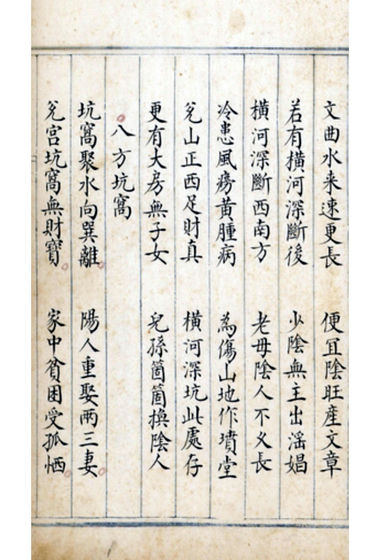 文曲水来速更長 便宜陰旺産文章
若有橫河深斷後 少陰無主出滛娼
橫河深斷西南方 老母陰人不乆長
冷患風癆黃腫病 為傷山地作墳堂
兊山正西足財真 橫河深坑此處存
更有大房無子女 兒孫箇箇換陰人
八方坑窩
坑窩聚水向巽離 陽人重娶兩三妻
兊宮坑窩無財寳 家中貧困受孤恓